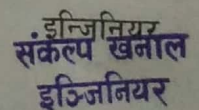 इन्जिनियर
संकल्प खनाल
इञ्जिनियर